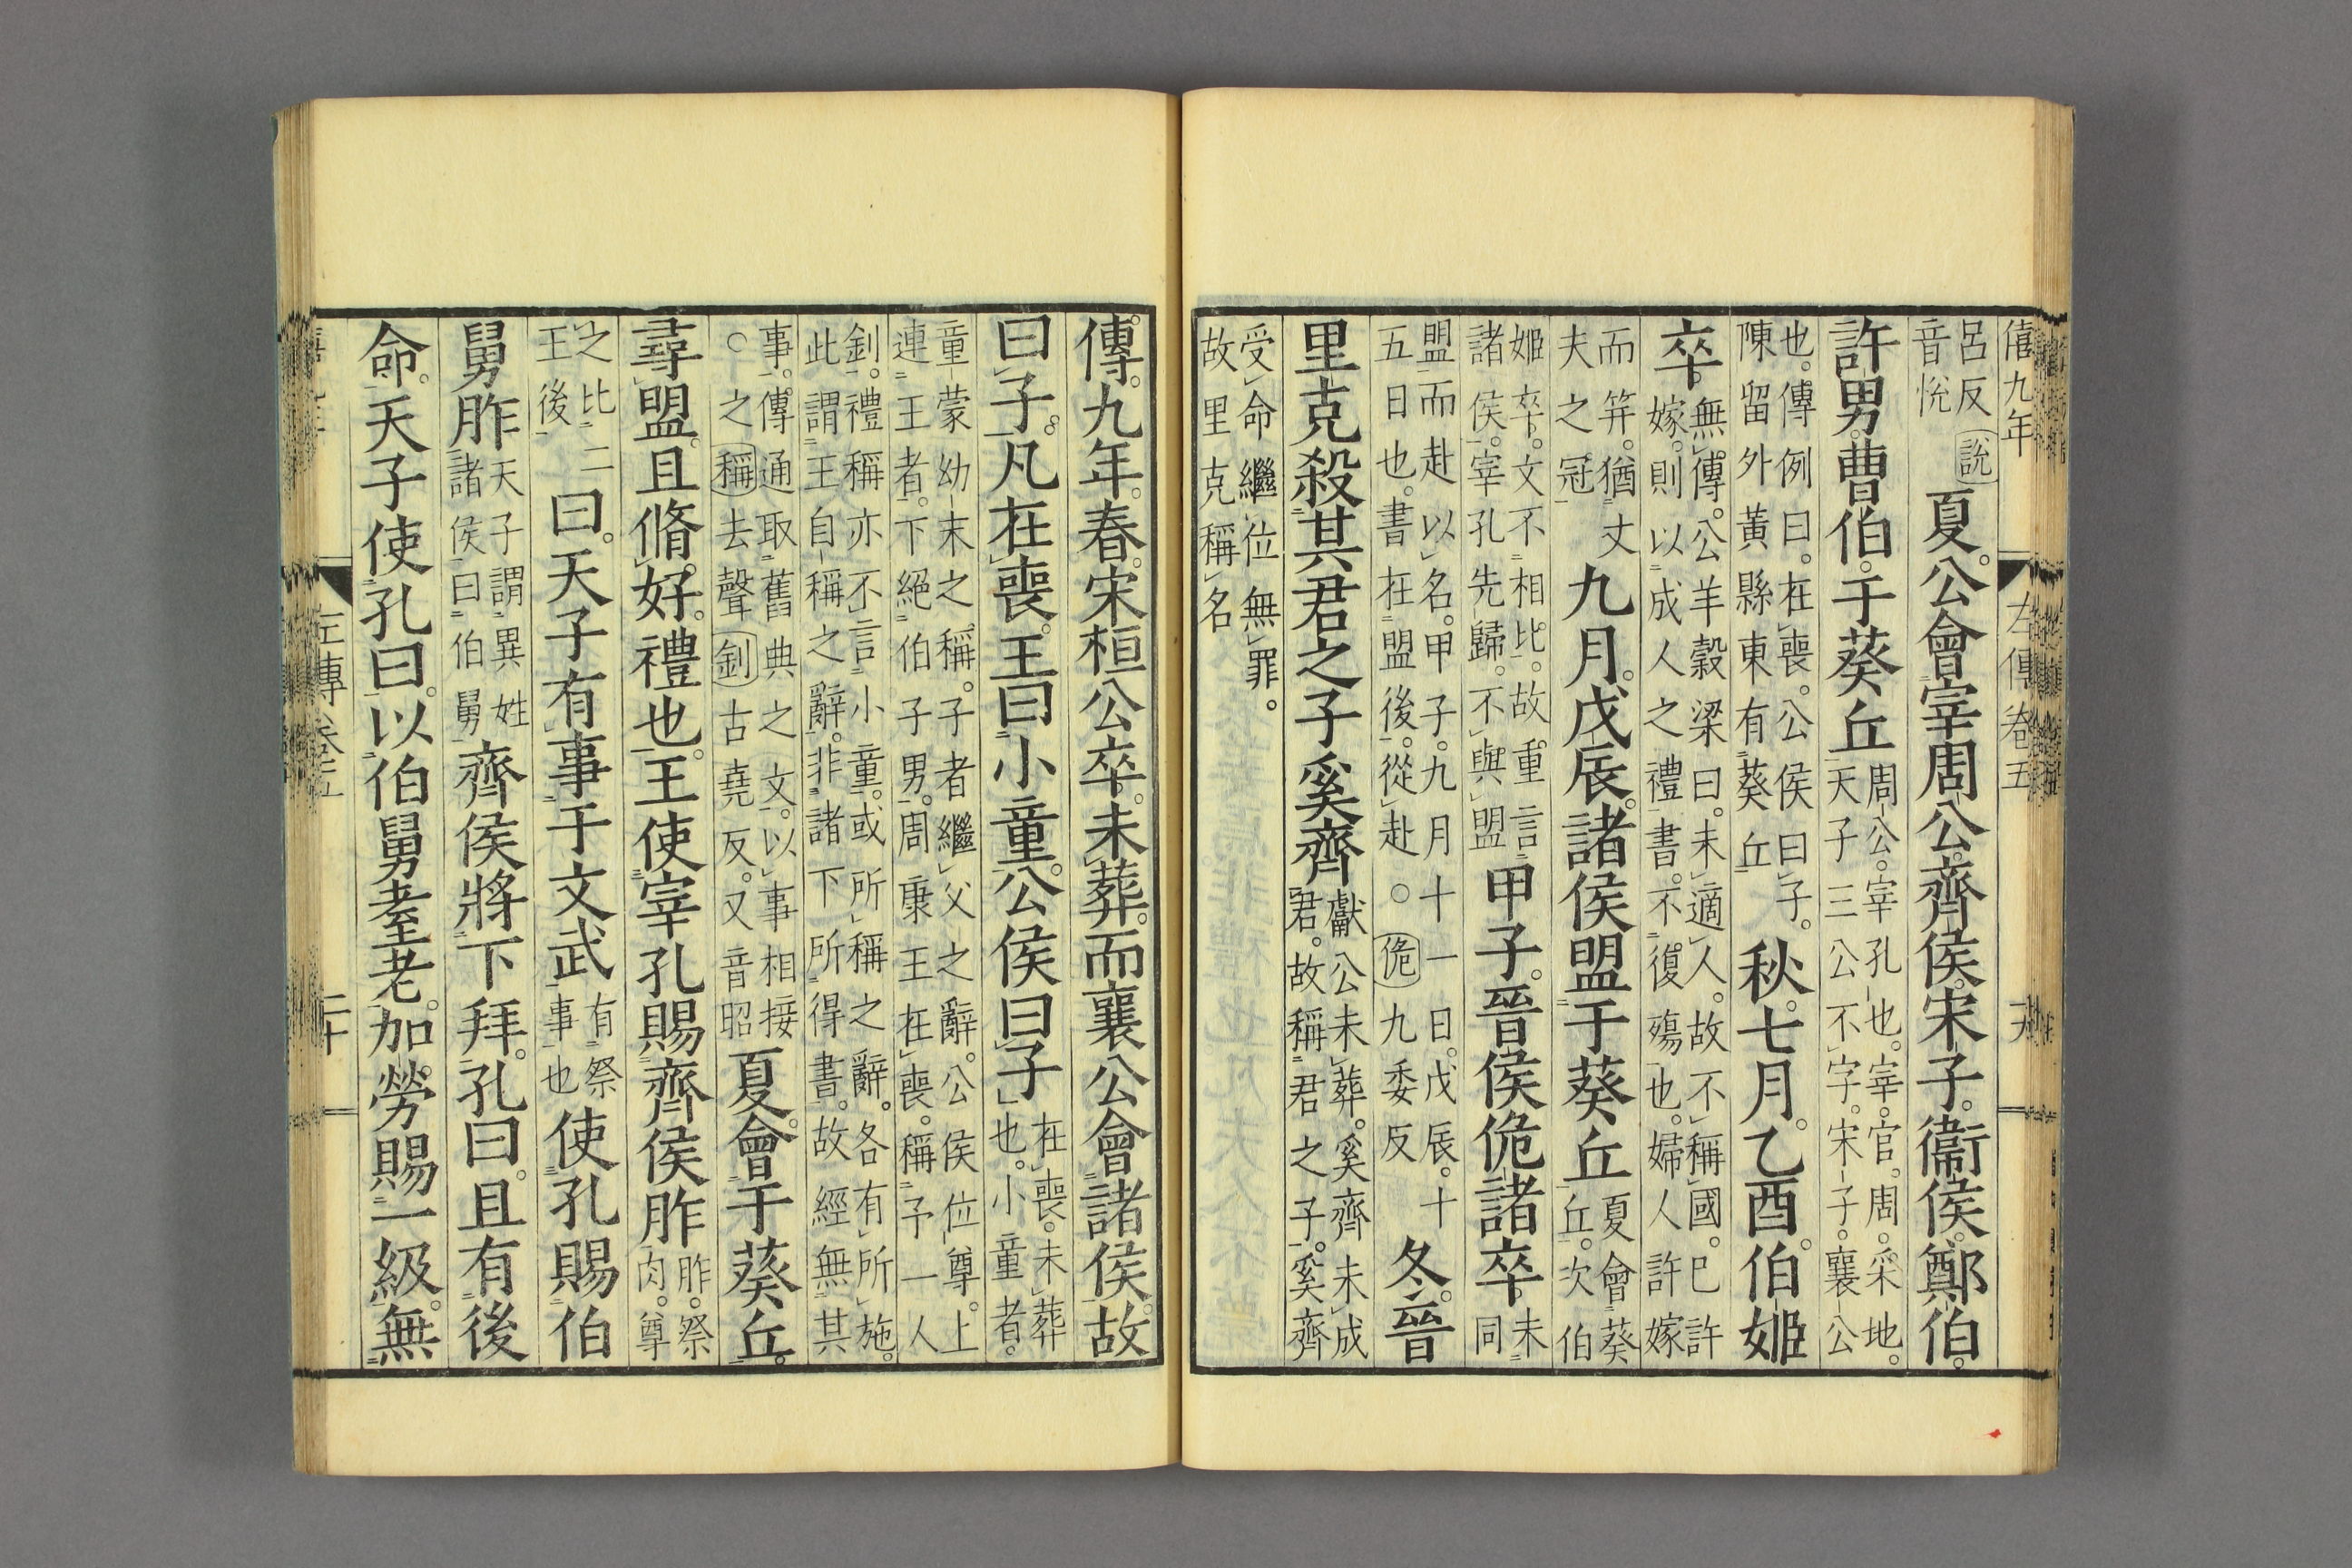 僖九年 左傳卷五 十九
呂反 音悅 說 夏。公會宰周公。齊侯。宋子。衞侯。鄭伯。
許男。曹伯。于葵丘 周公。宰孔也。宰。官。周。采地。 天子三公不字。宋子。襄公
也。傳例曰。在喪。公侯曰子。 陳留外黃縣東有葵丘 秋。七月。乙酉。伯姬
卒。 無傳。公羊穀梁曰。未適人。故不稱國。已許 嫁。則以成人之禮書。不復殤也。婦人許嫁
而笄。猶丈 夫之冠 九月。戊辰。諸侯盟于葵丘 夏會葵 丘。次伯
姬卒。文不相比。故重言 諸侯。宰孔先歸。不與盟 甲子。晉侯佹諸卒。 未 同
盟而赴以名。甲子。九月十一日。戊辰。十 五日也。書在盟後。從赴 ○ 佹 九委反 冬。晉
里克殺其君之子奚齊 獻公未葬。奚齊未成 君。故稱君之子。奚齊
受命繼位無罪。 故里克稱名
傳。九年。春。宋桓公卒。未葬。而襄公會諸侯。故
曰子。凡在喪。王曰小童。公侯曰子 在喪。未葬 也。小童者。
童蒙幼末之稱。子者繼父之辭。公侯位尊。上 連王者。下絕伯子男。周康王在喪。稱予一人
釗。禮稱亦不言小童。或所稱之辭。各有所施。 此謂王自稱之辭。非諸下所得書。故經無其
事。傳通取舊典之文。以事相接 ○之 稱 去聲 釗 古堯反。又音昭 夏。會于葵丘。
尋盟。且脩好。禮也。王使宰孔賜齊侯胙 胙。祭 肉。尊
之比二 王後 曰。天子有事于文武 有祭 事也 使孔賜伯
舅胙 天子謂異姓 諸侯曰伯舅 齊侯將下拜。孔曰。且有後
命。天子使孔曰。以伯舅耋老。加勞賜一級。無
左傳卷五 二十